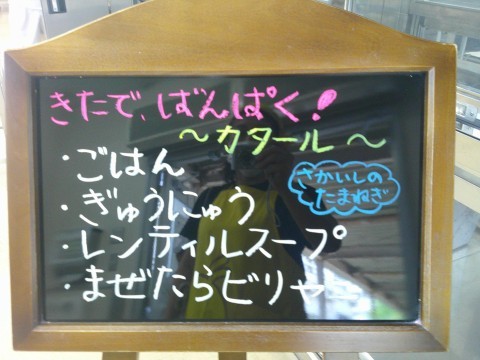 きたで、ばんぱく!
～カタール～
・ごはん
・ぎゅうにゅう
・レンティルスープ
・まぜたらビリヤー
さかいしの
たまねぎ